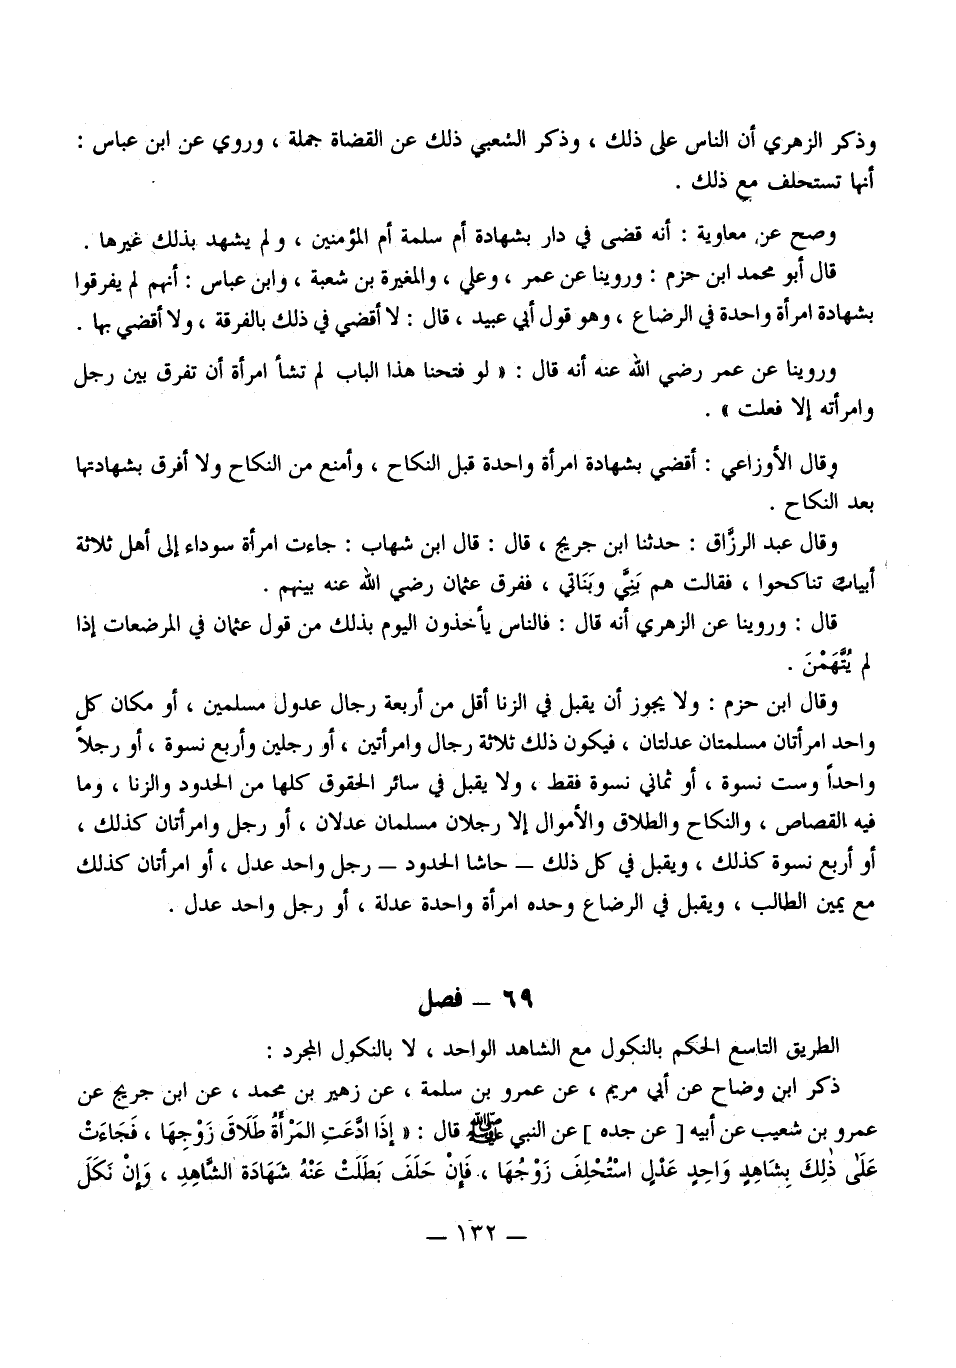 وذكر الزهري أن الناس على ذلك ، وذكر الشعبي ذلك عن القضاة جملة ، وروي عن ابن عباس :
أنها تستحلف مع ذلك .
وصح عن معاوية : أنه قضى في دار بشهادة أم سلمة أم المؤمنين ، ولم يشهد بذلك غيرها .
قال أبو محمد ابن حزم : وروينا عن عمر ، وعلي ، والمغيرة بن شعبة ، وابن عباس : أنهم لم يفرقوا
بشهادة امرأة واحدة في الرضاع ، وهو قول أبي عبيد ، قال : لا أقضي في ذلك بالفرقة ، ولا أقضي بها .
وروينا عن عمر رضي الله عنه أنه قال : « لو فتحنا هذا الباب لم تشأ امرأة أن تفرق بين رجل
وامرأته إلا فعلت » .
وقال الأوزاعي : أقضي بشهادة امرأة واحدة قبل النكاح ، وأمنع من النكاح ولا أفرق بشهادتها
بعد النكاح .
وقال عبد الرزَّاق : حدثنا ابن جريج ، قال : قال ابن شهاب : جاءت امرأة سوداء إلى أهل ثلاثة
أبيات تناكحوا ، فقالت هم بَنِيَّ وبَنَاتي ، ففرق عثمان رضي الله عنه بينهم .
قال : وروينا عن الزهري أنه قال : فالناس يأخذون اليوم بذلك من قول عثمان في المرضعات إذا
لم يُتَّهَمْنَ .
وقال ابن حزم : ولا يجوز أن يقبل في الزنا أقل من أربعة رجال عدول مسلمين ، أو مكان كل
واحد امرأتان مسلمتان عدلتان ، فيكون ذلك ثلاثة رجال وامرأتين ، أو رجلين وأربع نسوة ، أو رجلاً
واحداً وست نسوة ، أو ثماني نسوة فقط ، ولا يقبل في سائر الحقوق كلها من الحدود والزنا ، وما
فيه القصاص ، والنكاح والطلاق والأموال إلا رجلان مسلمان عدلان ، أو رجل وامرأتان كذلك ،
أو أربع نسوة كذلك ، ويقبل في كل ذلك – حاشا الحدود – رجل واحد عدل ، أو امرأتان كذلك
مع يمين الطالب ، ويقبل في الرضاع وحده امرأة واحدة عدلة ، أو رجل واحد عدل .
٦٩ – فصل
الطريق التاسع الحكم بالنكول مع الشاهد الواحد ، لا بالنكول المجرد :
ذكر ابن وضاح عن أبي مريم ، عن عمرو بن سلمة ، عن زهير بن محمد ، عن ابن جريج عن
عمرو بن شعيب عن أبيه [ عن جده ] عن النبي ﷺ قال : « إذَا ادَّعَتِ المَرْأَةُ طَلَاقَ زَوْجِهَا ، فَجَاءَتْ
عَلَى ذٰلِكَ بِشَاهِدٍ وَاحِدٍ عَدْلٍ اسْتُحْلِفَ زَوْجُهَا ، فَإِنْ حَلَفَ بَطَلَتْ عَنْهُ شَهَادَة الشَّاهِدِ ، وَإِنْ نَكَلَ
– ١٣٢ –